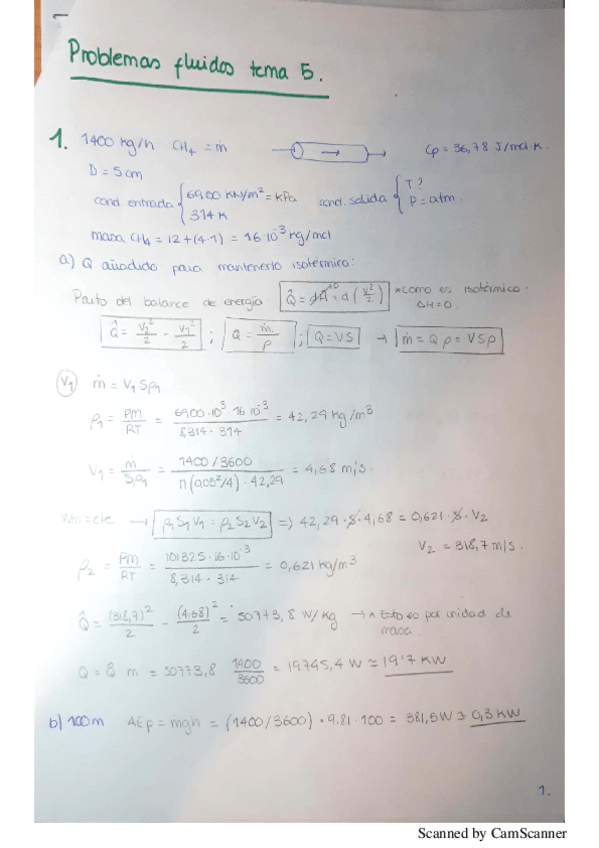 Problemas fluidos tema 5.
1. 1400 kg/h CH4 = ṁ Cp = 36,78 J/mol·K.
D = 5 cm
cond. entrada { 6900 KN/m² = kPa 314 K cond. salida { T? P = atm.
masa CH4 = 12 + (4·1) = 16·10⁻³ kg/mol
a) Q añadido para mantenerlo isotérmico:
Parto del balance de energía Q̂ = ΔH + Δ(v²/2) *como es isotérmico ΔH = 0.
Q̂ = V2²/2 - V1²/2 ; Q = ṁ/ρ ; Q = VS → ṁ = Qρ = VSρ
V1 ṁ = V1 Sρ1
ρ1 = PM/RT = 6900·10³·16·10⁻³ / 8,314·314 = 42,29 kg/m³
V1 = ṁ/Sρ1 = 1400/3600 / π(0,05²/4)·42,29 = 4,68 m/s.
= cte → ρ1S1V1 = ρ2S2V2 => 42,29·S·4,68 = 0,621·S·V2
V2 = 318,7 m/s.
ρ2 = PM/RT = 101325·16·10⁻³ / 8,314·314 = 0,621 kg/m³
Q̂ = (318,7)²/2 - (4.68)²/2 = 50773,8 W/kg → * Esto es por unidad de masa.
Q = Q̂ m = 50773,8 1400/3600 = 19745,4 W ≈ 19'7 KW
b) 100m ΔEp = mgh = (1400/3600)·9.81·100 = 381,5 W ≈ 0,3 KW
1.
Scanned by CamScanner